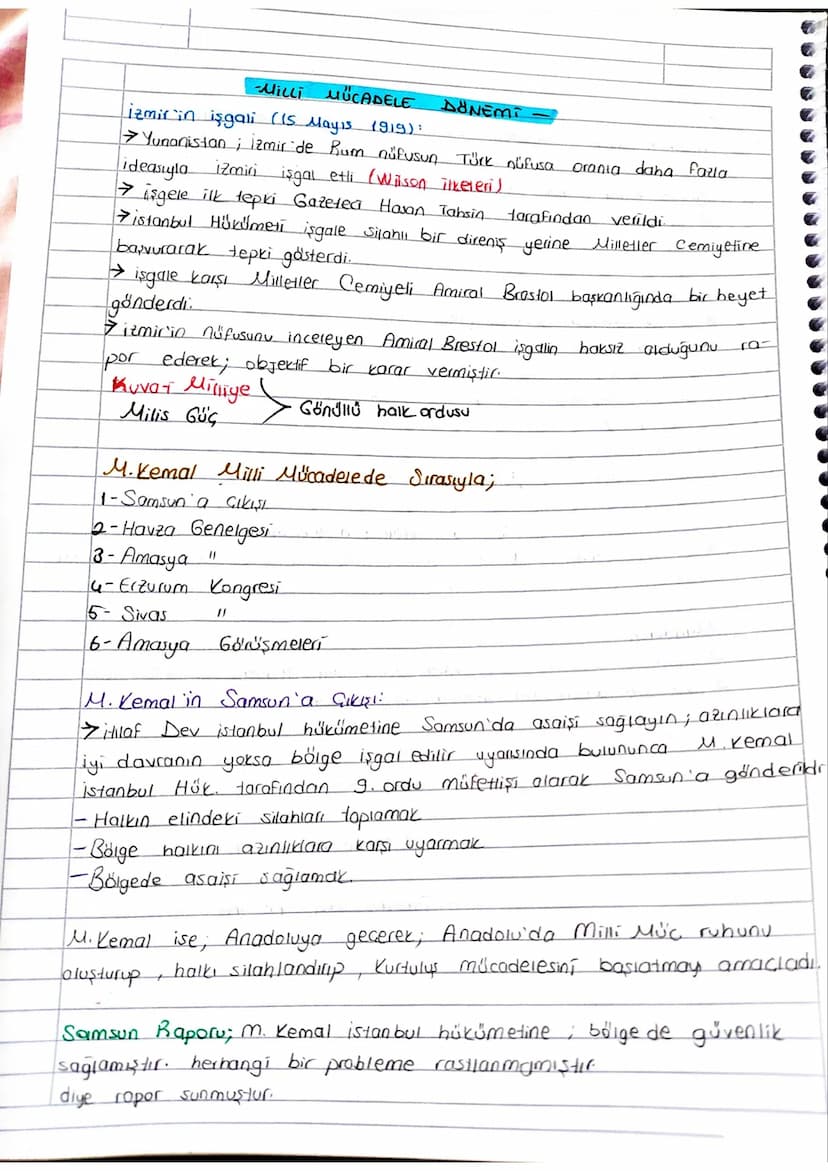 -Milli MÜCADELE DÖNEMİ -
İzmir'in işgali (15 Mayıs 1919):
→ Yunanistan ; izmir'de Rum nüfusun Türk nüfusa oranla daha fazla
ideasıyla izmiri işgal etti (Wilson ilkeleri)
→ işgele ilk tepki Gazeteci Hasan Tahsin tarafından verildi.
→ istanbul Hükümeti işgale silahlı bir direniş yerine Milletler Cemiyetine
başvurarak tepki gösterdi.
→ işgale karşı Milletler Cemiyeti Amiral Brostol başkanlığında bir heyet
gönderdi.
→ izmir'in nüfusunu inceleyen Amiral Brestol işgalin haksız olduğunu ra-
por ederek; objektif bir karar vermiştir.
Kuva-i Milliye
Milis Güç
Gönüllü halk ordusu
M.Kemal Milli Mücadelede Sırasıyla;
1-Samsun'a Çıkışı
2-Havza Genelgesi
3- Amasya "
4- Erzurum Kongresi
5- Sivas "
6- Amasya Görüşmeleri
M. Kemal'in Samsun'a Çıkışı:
→ itilaf Dev istanbul hükümetine Samsun'da asaişi sağlayın; azınlıklara
iyi davranın yoksa bölge işgal edilir uyarısında bulununca M. Kemal
istanbul Hük. tarafından 9. ordu müfettişi olarak Samsun'a gönderildi
- Halkın elindeki silahları toplamak
- Bölge halkını azınlıklara karşı uyarmak
- Bölgede asaişi sağlamak.
M. Kemal ise; Anadoluya geçerek; Anadolu'da Milli Müc ruhunu
oluşturup , halkı silahlandırıp , Kurtuluş mücadelesini başlatmay amaçladı.
Samsun Raporu; M. Kemal istanbul hükümetine ; bölge de güvenlik
sağlamıştır. herhangi bir probleme rastlanmamıştır.
diye rapor sunmuştur.